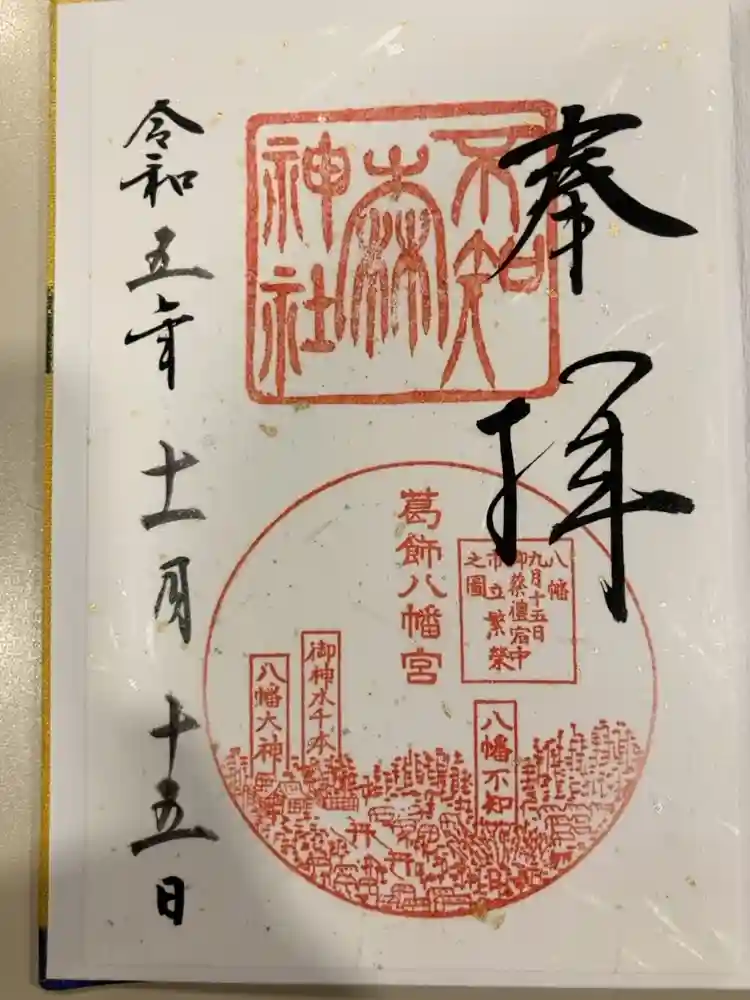 奉拝
不知
森
神社
葛飾八幡宮
八幡
九月十五日
御祭禮宿中
市立繁榮
之圖
八幡不知
御神木千本
八幡大神
令和五年十一月十五日